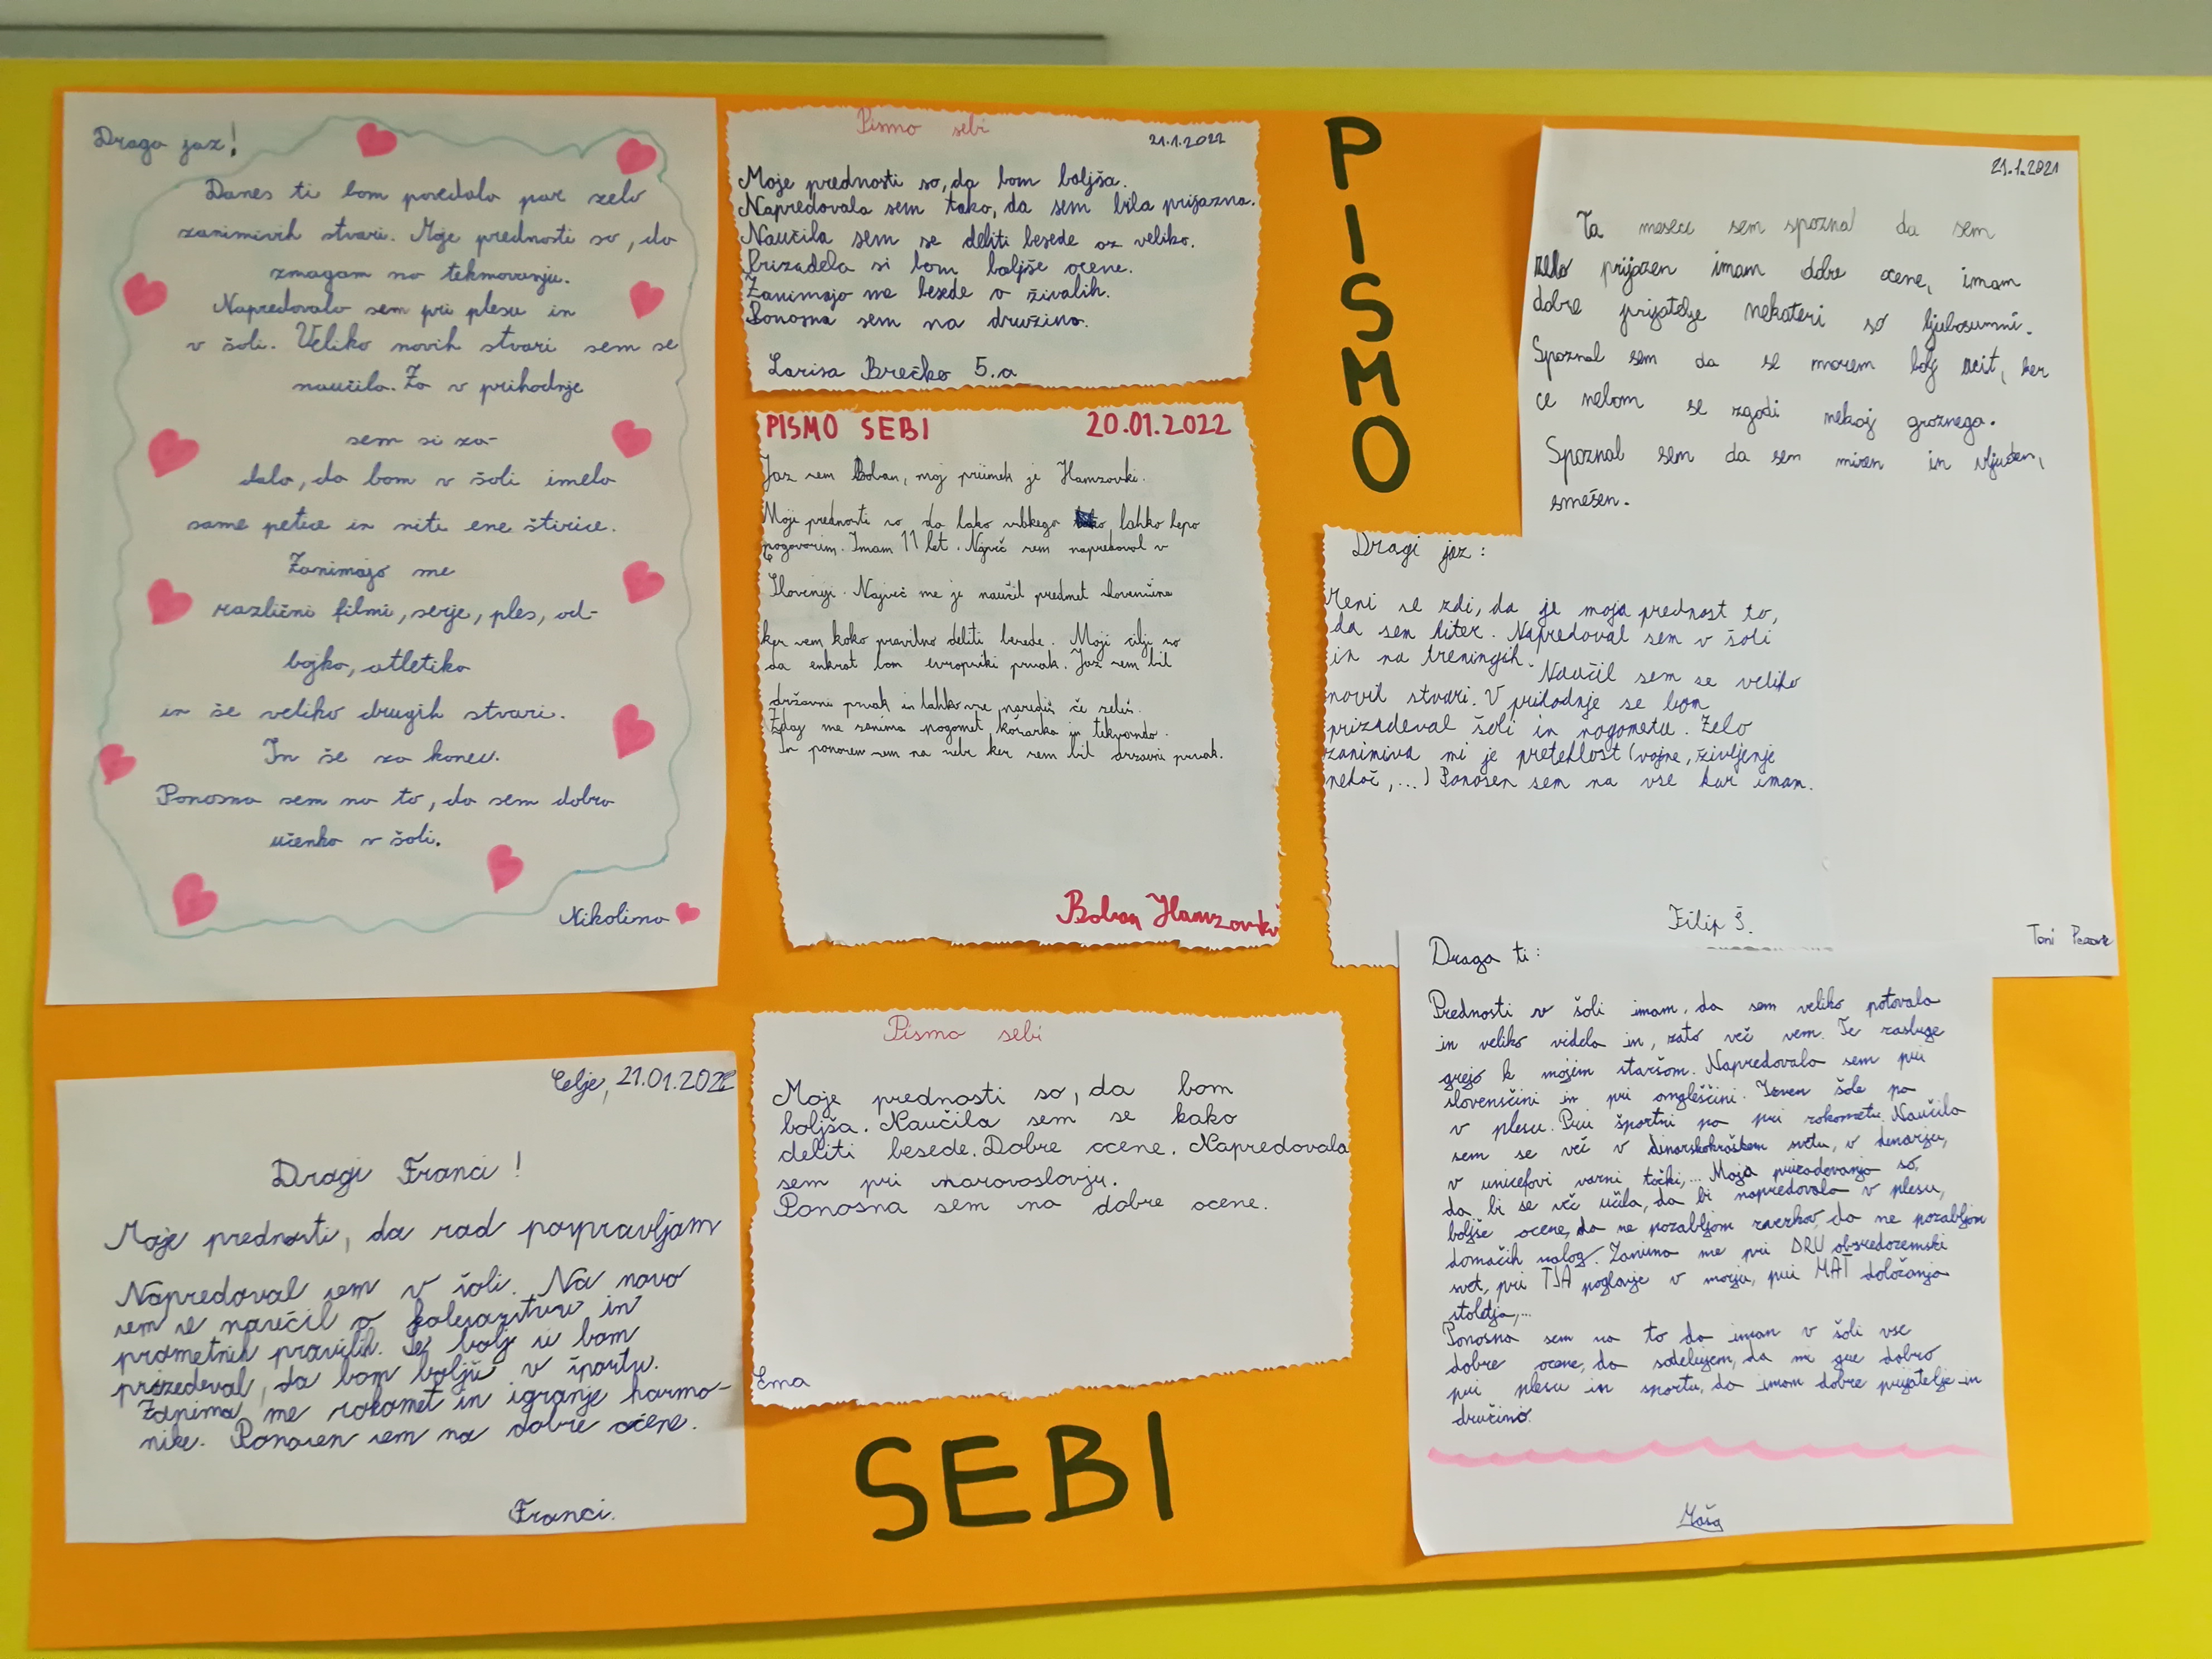 Draga jaz!
Danes ti bom povedala par zelo
zanimivih stvari. Moje prednosti so, da
zmagam na tekmovanju.
Napredovala sem pri plesu in
v šoli. Veliko novih stvari sem se
naučila. Za v prihodnje
sem si za-
dala, da bom v šoli imela
same petice in niti ene štirice.
Zanimajo me
različni filmi, serje, ples, od-
bojka, atletika
in še veliko drugih stvari.
In še za konec.
Ponosna sem na to, da sem dobra
učenka v šoli.
Nikolina
Pismo sebi
21.1.2022
Moje prednosti so, da bom boljša.
Napredovala sem tako, da sem bila prijazna.
Naučila sem se deliti besede oz veliko.
Prizadela si bom boljše ocene.
Zanimajo me besede o živalih.
Ponosna sem na družino.
Larisa Brečko 5.a
PISMO SEBI 20.01.2022
Jaz sem Boban, moj priimek je Hamzovski.
Moje prednosti so da lako vsakega lahko lepo
pogovorim. Imam 11 let. Največ sem napredoval v
Sloveniji. Največ me je naučil predmet slovenščina
ker vem kako pravilno deliti besede. Moji cilji so
da enkrat bom evropski prvak. Jaz sem bil
državni prvak in lahko vse narediš če želiš.
Zdaj me zanima nogomet košarka in tekvondo.
In ponosen sem na sebe ker sem bil državni prvak.
Boban Hamzovski
PISMO
21.1.2021
Ta mesec sem spoznal da sem
zelo prijazen imam dobre ocene, imam
dobre prijatelje nekateri so ljubosumni.
Spoznal sem da se morem bolj učit, ker
če nebom se zgodi nekaj groznega.
Spoznal sem da sem miren in vljuden,
smešen.
Toni
Dragi jaz:
Meni se zdi, da je moja prednost to,
da sem hiter. Napredoval sem v šoli
in na treningih. Naučil sem se veliko
novih stvari. V prihodnje se bom
prizadeval šoli in nogometu. Zelo
zanimiva mi je preteklost (vojne, življenje
nekoč,...) Ponosen sem na vse kar imam.
Filip Š.
Draga ti:
Prednosti v šoli imam, da sem veliko potovala
in veliko videla in, zato več vem. Te zasluge
grejo k mojim staršom. Napredovala sem pri
slovenščini in pri angleščini. Izven šole pa
v plesu. Pri športni pa pri rokometu. Naučila
sem se več v dinarskokraškem svetu, v denarju,
v unicefovi varni točki,... Moja prizadovanja so,
da bi se več učila, da bi napredovala v plesu,
boljše ocene, da ne pozabljam zvezkov, da ne pozabljam
domačih nalog. Zanima me pri DRU obsredozemski
svet, pri TJA poglavje v morju, pri MAT določanja
stoletja,...
Ponosna sem na to da imam v šoli vse
dobre ocene, da sodelujem, da mi gre dobro
pri plesu in športu, da imam dobre prijatelje in
družino.
Maša
Celje, 21.01.2022
Dragi Franci!
Moje prednosti, da rad popravljam
Napredoval sem v šoli. Na novo
sem se naučil o kolesarstvu in
prometnih pravilih. Še bolj si bom
prizedeval, da bom boljši v športu.
Zanima me rokomet in igranje harmo-
nike. Ponosen sem na dobre ocene.
Franci.
Pismo sebi
Moje prednosti so, da bom
boljša. Naučila sem se kako
deliti besede. Dobre ocene. Napredovala
sem pri naravoslovju.
Ponosna sem na dobre ocene.
Ema
SEBI